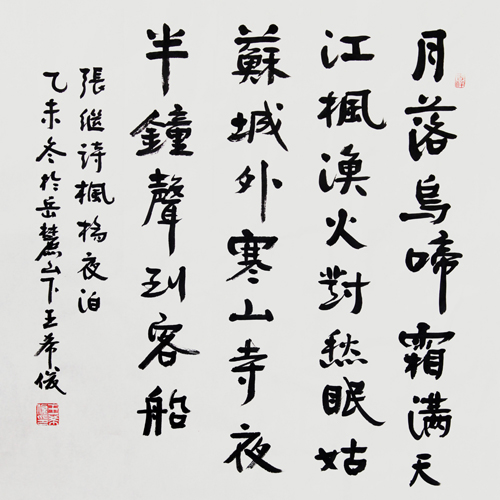 月落烏啼霜满天
江楓渔火對愁眠姑
蘇城外寒山寺夜
半鐘聲到客船
張继诗楓橋夜泊
乙未冬於岳麓山下王希俊